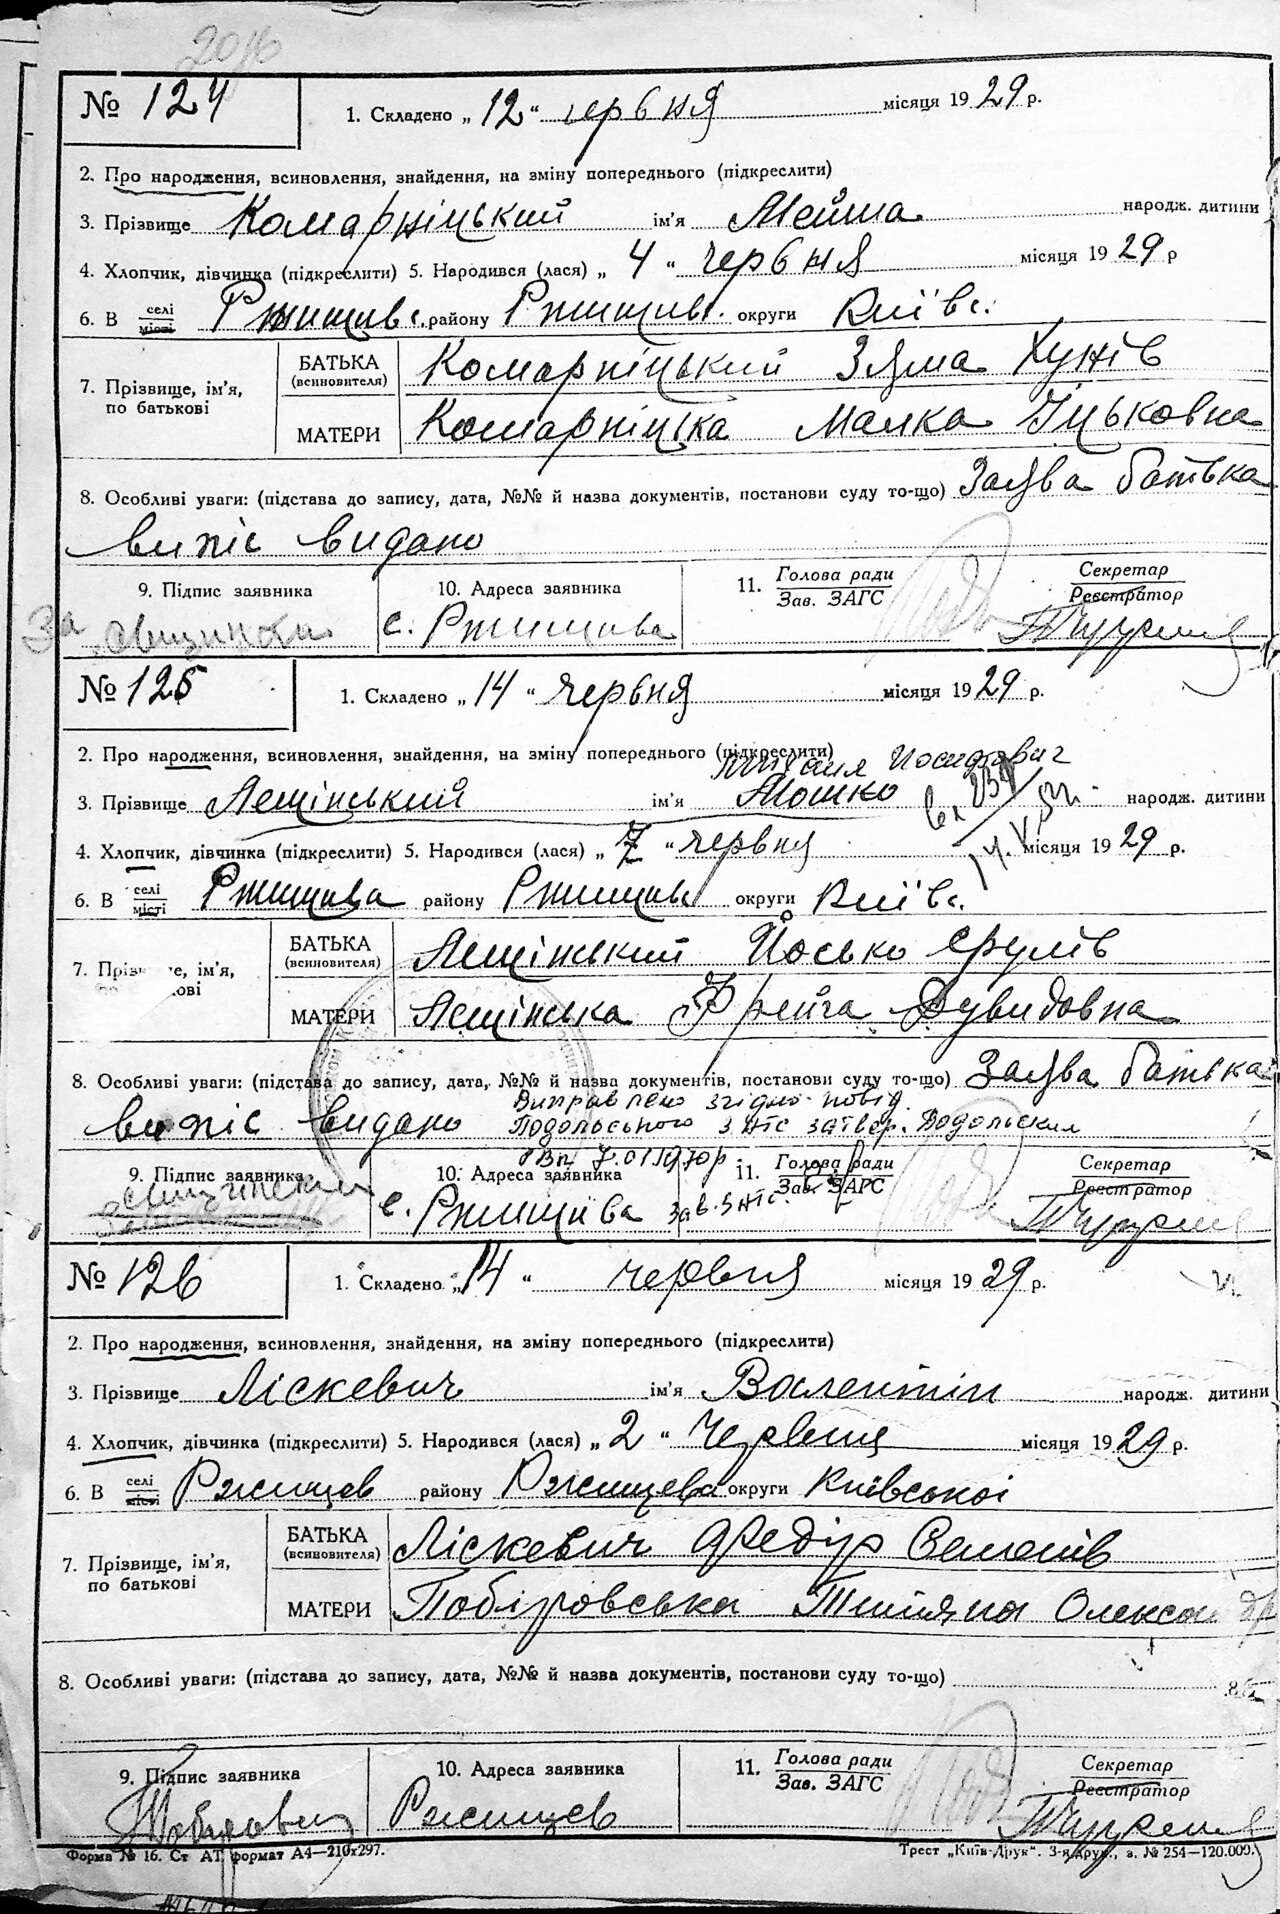 2016
№ 124
1. Складено „ 12 “ червня місяця 19 29 р.
2. Про народження, всиновлення, знайдення, на зміну попереднього (підкреслити)
3. Прізвище Комарніцький ім'я Мейша народж. дитини
4. Хлопчик, дівчинка (підкреслити) 5. Народився (лася) „ 4 “ червня місяця 19 29 р
6. В селі місті Ржищив. району Ржищив. округи Київс.
7. Прізвище, ім'я, по батькові
БАТЬКА (всиновителя) Комарніцький Зяма Хунів
МАТЕРИ Комарніцька Малка Іцьковна
8. Особливі уваги: (підстава до запису, дата, №№ й назва документів, постанови суду то-що) Заява батька
випіс видано
9. Підпис заявника 10. Адреса заявника 11. Голова ради Зав. ЗАГС Секретар Реєстратор
За с. Ржищива
№ 125
1. Складено „ 14 “ червня місяця 19 29 р.
2. Про народження, всиновлення, знайдення, на зміну попереднього (підкреслити)
Йосифович
3. Прізвище Лещінський ім'я Мошко народж. дитини
4. Хлопчик, дівчинка (підкреслити) 5. Народився (лася) „ 7 “ червня місяця 19 29 р.
6. В селі місті Ржищива району Ржищив округи Київс.
7. ім'я,
БАТЬКА (всиновителя) Лещінський Йосько Срулів
МАТЕРИ Лещінська Фрейга Дувидовна
8. Особливі уваги: (підстава до запису, дата, №№ й назва документів, постанови суду то-що) Заява батька
випіс видано Виправлено згідно повід.
Подольського ЗАГС затвер. Подольским
РВК 7.01.1970р.
9. Підпис заявника 10. Адреса заявника 11. Голова ради Зав. ЗАГС Секретар Реєстратор
с. Ржищива Зав. ЗАГС
№ 126
1. Складено „ 14 “ червня місяця 19 29 р.
2. Про народження, всиновлення, знайдення, на зміну попереднього (підкреслити)
3. Прізвище Ліскевич ім'я Валентін народж. дитини
4. Хлопчик, дівчинка (підкреслити) 5. Народився (лася) „ 2 “ Червня місяця 19 29 р.
6. В селі місті Ржищев району Ржищева округи Київської
7. Прізвище, ім'я, по батькові
БАТЬКА (всиновителя) Ліскевич Федір Семенів
МАТЕРИ Побіровська Тетяна Олександр
8. Особливі уваги: (підстава до запису, дата, №№ й назва документів, постанови суду то-що)
9. Підпис заявника 10. Адреса заявника 11. Голова ради Зав. ЗАГС Секретар Реєстратор
Ржищев
Форма № 16. Ст АТ формат А4—210х297.
Трест „Київ-Друк“. 3-я друк., з. № 254—120.000.